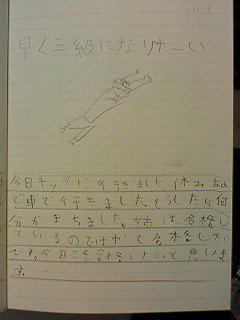 早く三級になりたーい
今日キッズに行きました。休み
で車で行きました。そうしたら何
分かまちました。姉は、合格し
ているのではやく合格したい
です。今日こそ合格したいと思いま
す。